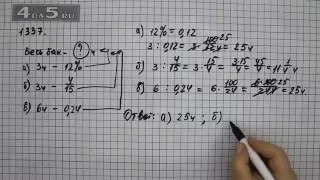 4·DA5·RU
1337.
Весь бак - ? ч
а) 3ч - 12%
б) 3ч - 4/15
в) 6ч - 0,24
а) 12% = 0,12
3 : 0,12 = 3 · 100/12 = 25ч
б) 3 : 4/15 = 3 · 15/4 = 3·15/4 = 45/4 = 11 1/4 ч
в) 6 : 0,24 = 6 · 100/24 = 6·100/24 = 25ч.
Ответ: а) 25ч ; б)